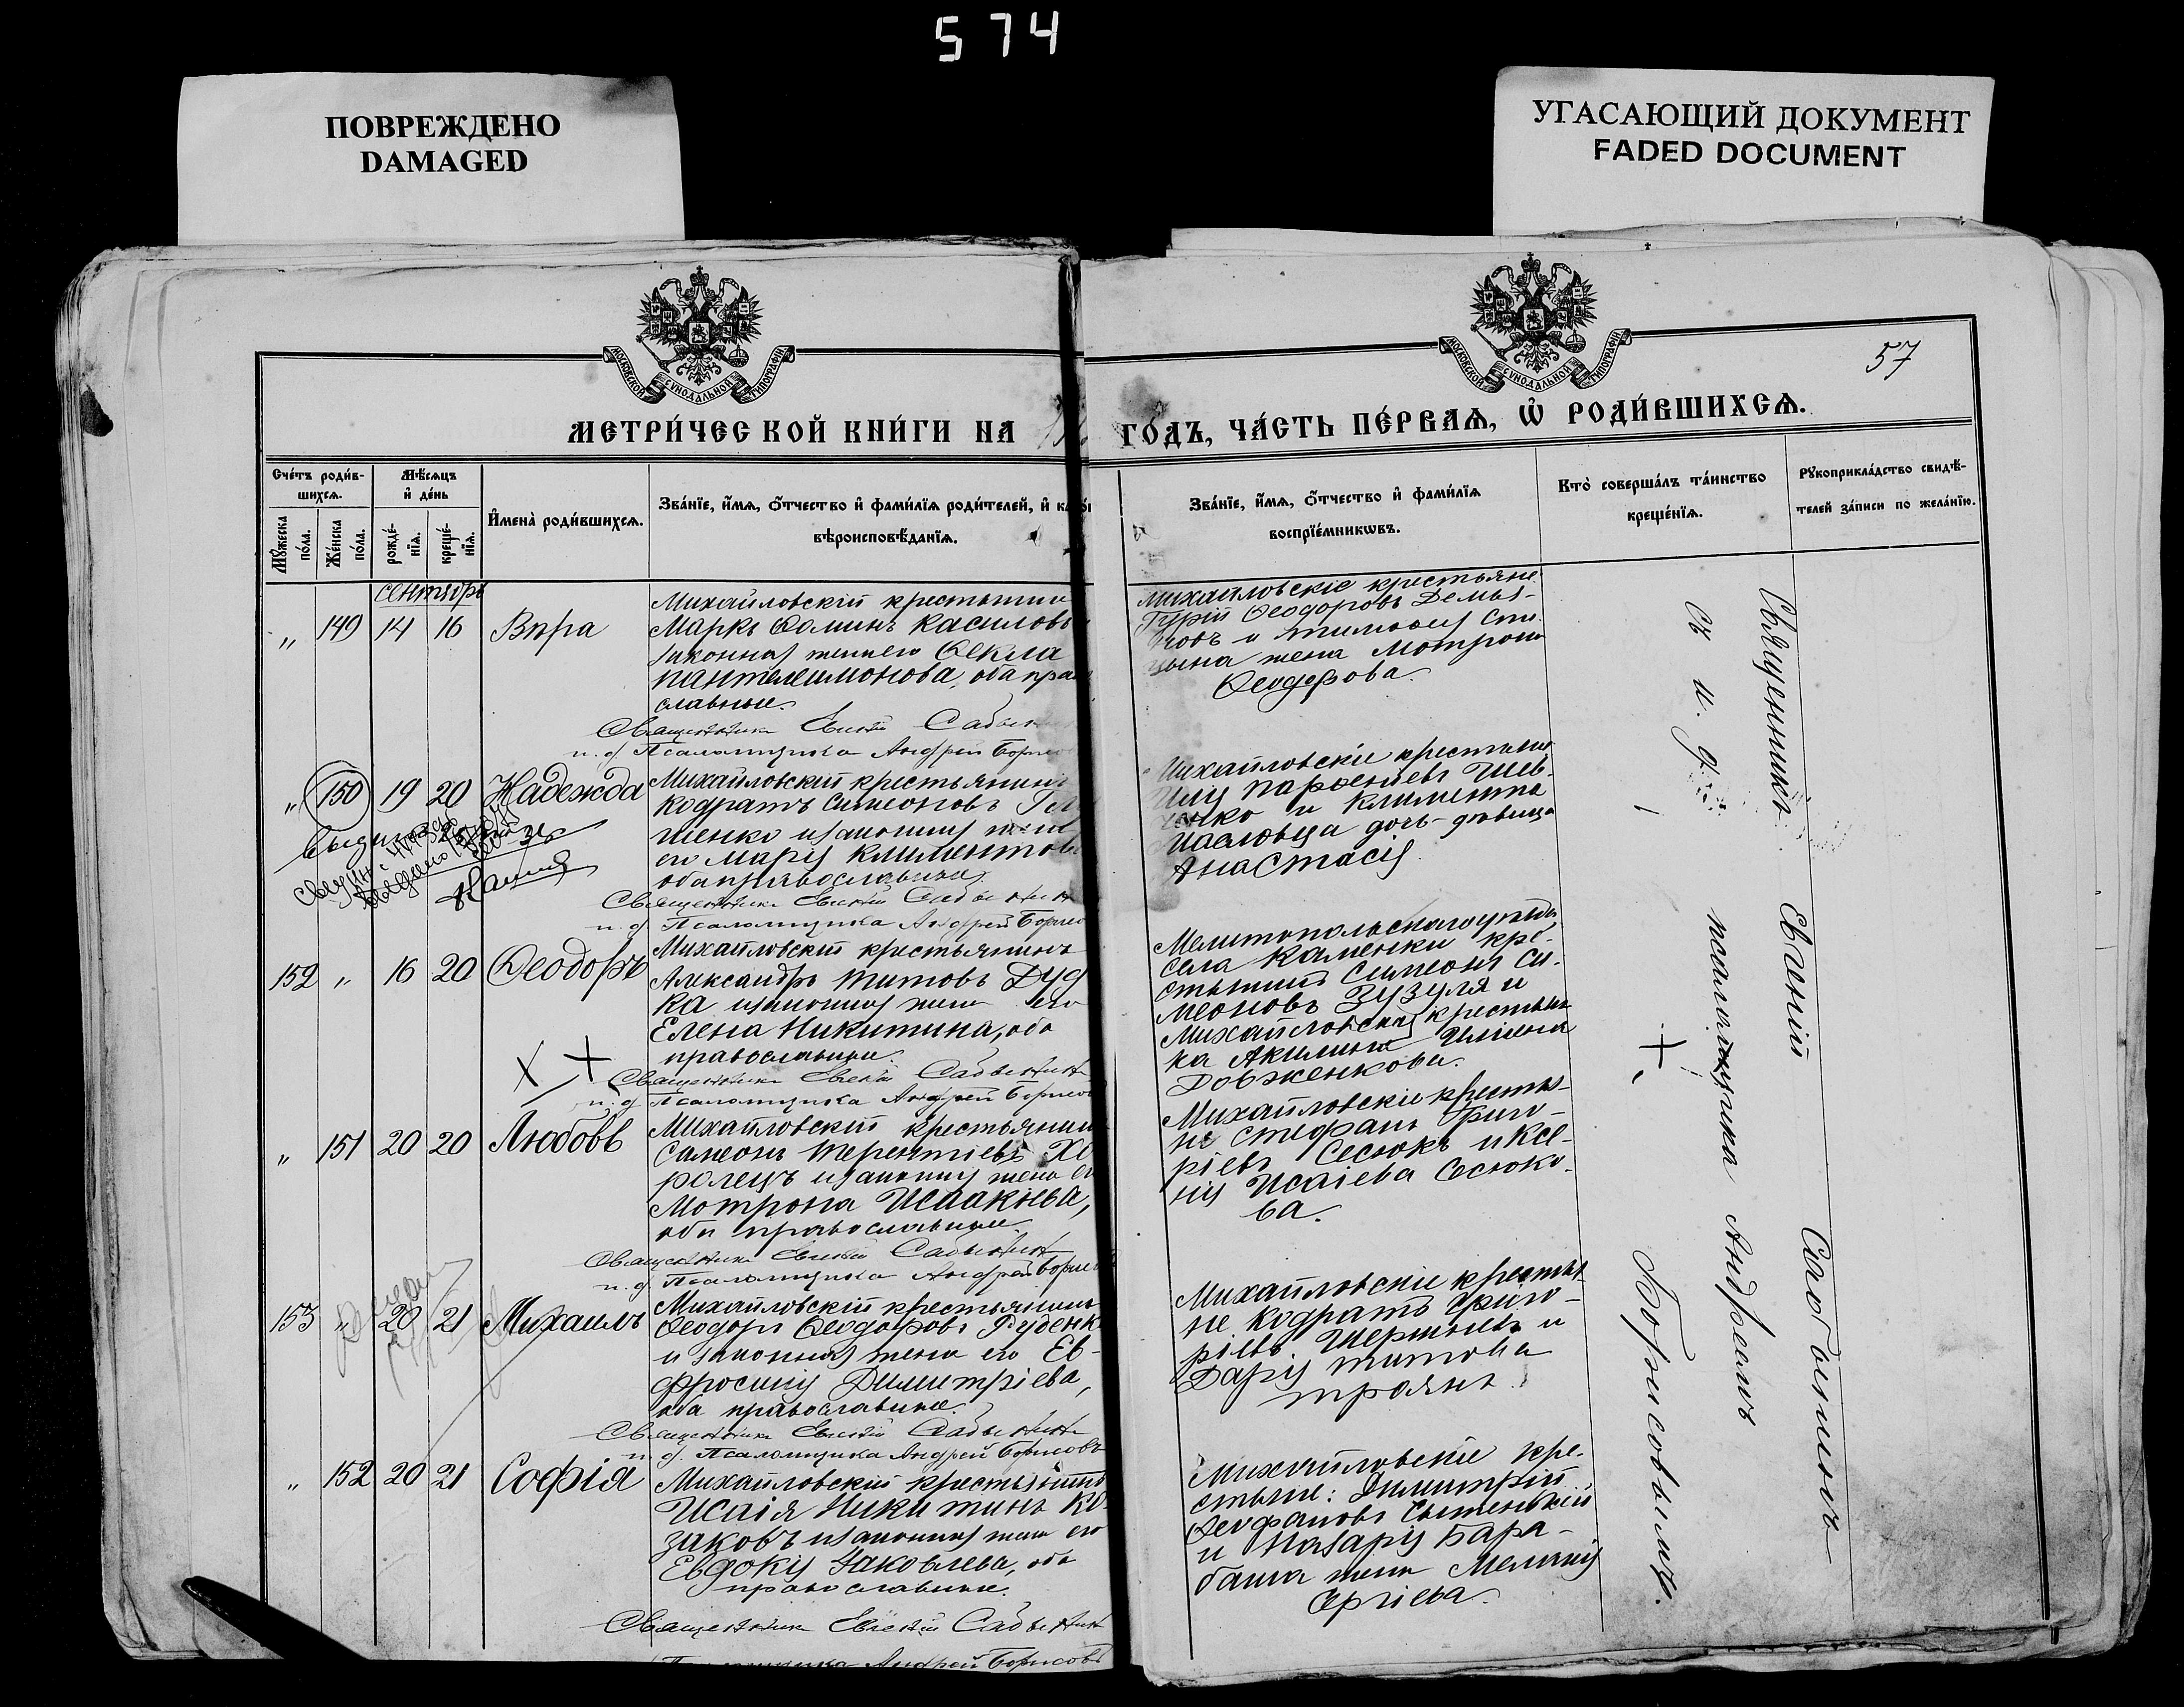 574
ПОВРЕЖДЕНО
DAMAGED
УГАСАЮЩИЙ ДОКУМЕНТ
FADED DOCUMENT
МОСКОВСКОЙ СѴНОДАЛЬНОЙ ТИПОГРАФІИ
МОСКОВСКОЙ СѴНОДАЛЬНОЙ ТИПОГРАФІИ
57
МЕТРИ́ЧЕСКОЙ КНИ́ГИ НА
ГО́ДЪ, ЧА́СТЬ ПЕ́РВАѦ, Ѽ РОДИ́ВШИХСѦ.
Сче́тъ роди́в-
шихсѧ.
Мꙋ́жеска
по́ла.
Же́нска
по́ла.
Мѣ́сѧцъ
и҆ де́нь
рожде́-
нїѧ.
креще́-
нїѧ.
И҆мена̀ роди́вшихсѧ.
Зва́нїе, и҆́мѧ, ѻ҆́тчество и҆ фами́лїѧ роди́телей, и҆
вѣроисповѣ́данїѧ.
Зва́нїе, и҆́мѧ, ѻ҆́тчество и҆ фами́лїѧ
воспрїе́мникѡвъ.
Кто̀ соверша́лъ та́инство
креще́нїѧ.
Рꙋкоприкла́дство свидѣ́-
телей за́писи по жела́нїю.
сентябрь
" 149 14 16 Вѣра
Михайловскій крестьянин
Маркъ Ѳоминъ Касилов
законная жена его Ѳекла
Пантелеимонова, оба пра
славные.
Священникъ Евгеній Сабынин
и. д. Псаломщика Андрей Борисов
Михайловскіе крестьяне
Гурій Ѳеодоровъ Демья-
жена Мотрона
Ѳеодорова.
" 150 19 20 Надежда
Михайловскій крестьянинъ
Кодратъ Симеоновъ
шенко и законная жена
его Марія Климентов
оба православные
Священникъ Евгеній Сабынин
и. д. Псаломщика Андрей Борисов
Михайловскіе крестьяне
Илія Парѳеніевъ Шев-
ченко и Климента
Павловца дочь-дѣвица
Анастасія.
152 " 16 20 Ѳеодоръ
Михайловскій крестьянинъ
Александръ Титовъ Дуд
ка и законная жена его
Елена Никитина, оба
православные.
Священникъ Евгеній Сабынин
и. д. Псаломщика Андрей Борисов
Мелитопольскаго уѣзда
села Каменки кре-
стьянинъ Симеонъ Си-
меоновъ Зузуля и
Михайловская крестьян
ка Акилина
Довженкова.
" 151 20 20 Любовь
Михайловскій крестьянин
Симеонъ Терентіевъ Хо
ролецъ и законная жена ег
Мотрона Исаакіева,
оба православные.
Священникъ Евгеній Сабынин
и. д. Псаломщика Андрей Борисов
Михайловскіе крестья-
не Стефанъ Григо-
ріевъ Сесюкъ и Ксе-
нія Исаіева Сесюко-
ва.
153 " 20 21 Михаилъ
Михайловскій крестьянинъ
Ѳеодоръ Ѳеодоровъ Руденк
и законная жена его Ев-
фросинія Димитріева,
оба православные.
Священникъ Евгеній Сабынин
и. д. Псаломщика Андрей Борисовъ
Михайловскіе крестья-
не Кодратъ Григо-
ріевъ и
Дарія Титова
Троянъ.
" 152 20 21 Софія
Михайловскій крестьянинъ
Исаія Никитинъ Ко-
заковъ и законная жена его
Евдокія Іаковлева, оба
православные.
Священникъ Евгеній Сабынин
Андрей Борисовъ
Михайловскіе кре-
стьяне: Димитрій
Ѳеофановъ Сытенькій
и Назарія Бара-
баша жена Меланія
Сергіева.
Священникъ Евгеній Сабынинъ
съ и. д. псаломщика Андреемъ Борисовымъ.